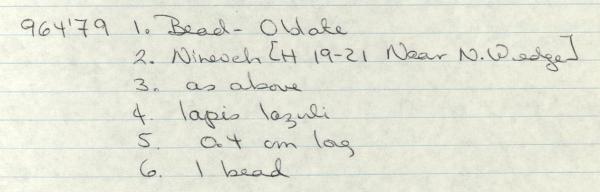 964'79 1. Bead - Oblate
2. Nineveh [H 19-21 Near N. Wedge]
3. as above
4. lapis lazuli
5. 0.4 cm log
6. 1 bead